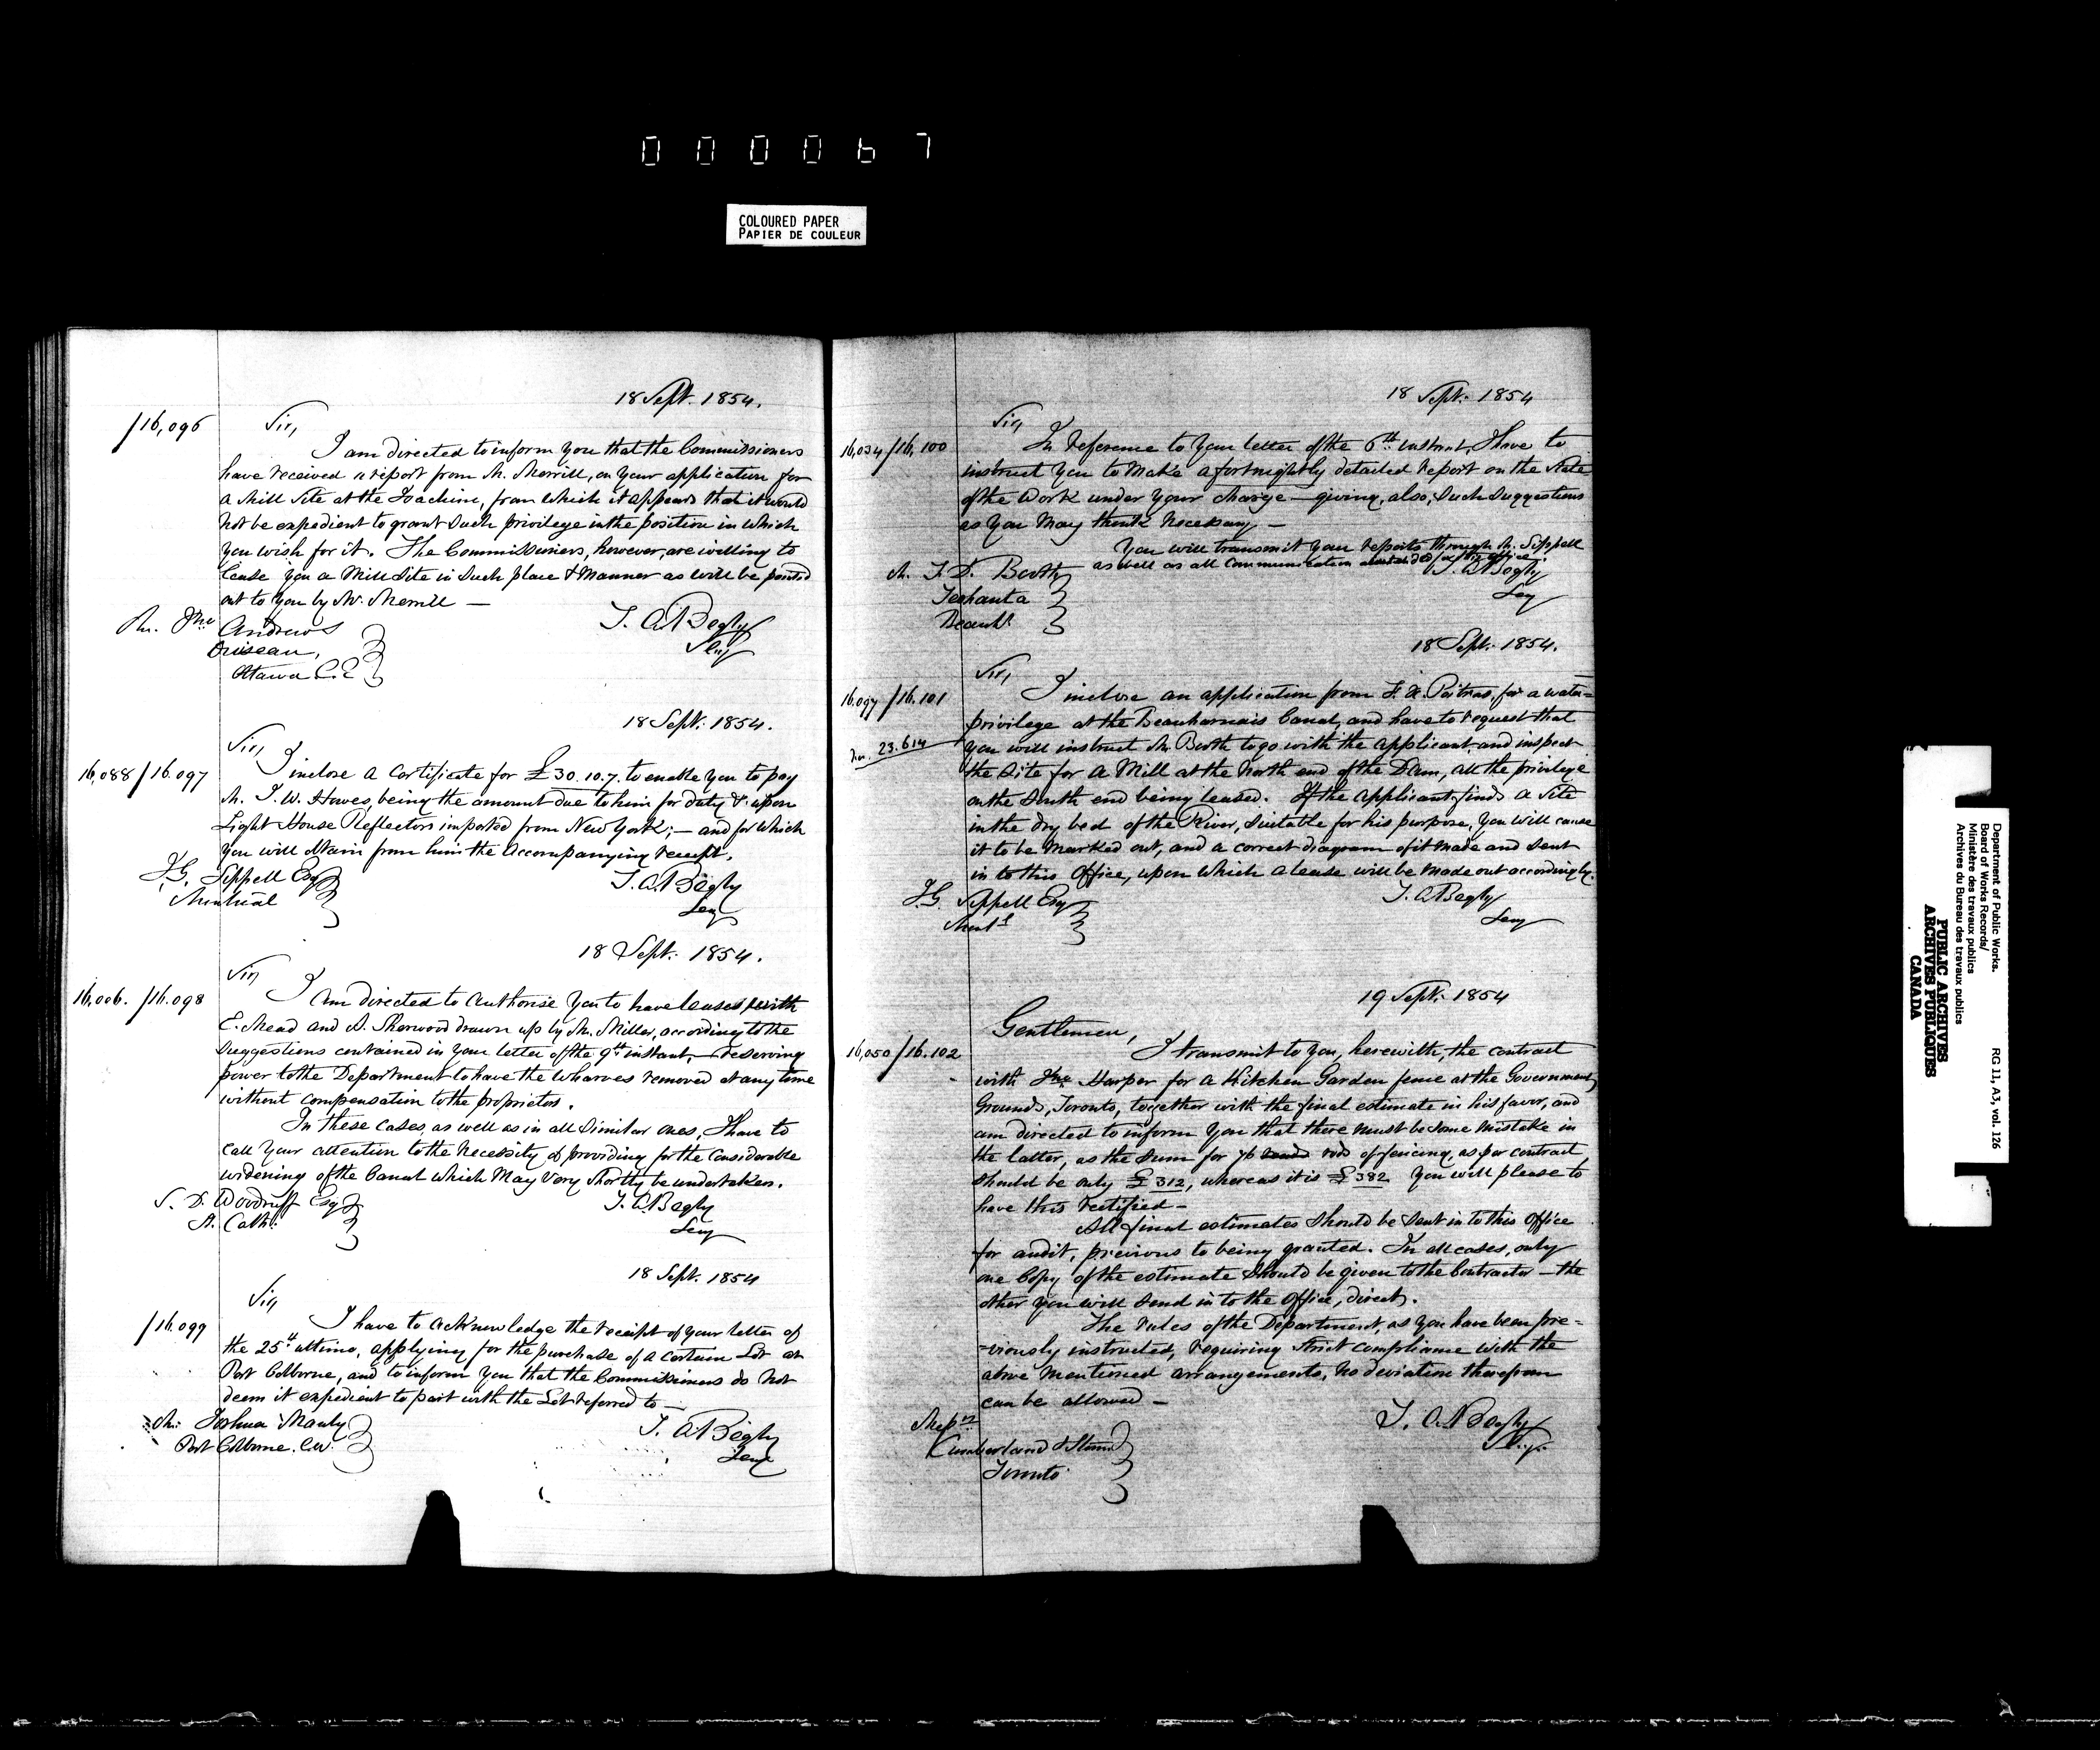 000067
COLOURED PAPER
PAPIER DE COULEUR
18 Sept. 1854.
/16,096
Sir,
I am directed to inform you that the Commissioners
have received a report from Mr. Merrill, on your application for
a Mill Site at the Joachim, from which it appears that it would
not be expedient to grant such privilege in the position in which
you wish for it. The Commissioners, however, are willing to
lease you a Mill Site in such place & manner as will be pointed
out to you by Mr. Merrill —
T. A. Begly
Secy
Mr. Jno Andrews
Ottawa C.E
18 Sept. 1854.
Sir,
16,088 / 16.097
I inclose a Certificate for £30.10.7. to enable you to pay
Mr. J. W. Howes, being the amount due to him for duty &c upon
Light House Reflectors imported from New York; — and for which
you will obtain from him the accompanying receipt.
J.G. Sippell Esq
Montreal
T. A. Begly
Secy
18 Sept. 1854.
Sir
16,006. /16.098
I am directed to authorise you to have leases with
E. Mead and S. Sherwood drawn up by Mr. Miller, according to the
suggestions contained in your letter of the 9th instant, — reserving
power to the Department to have the Wharves removed at any time
without compensation to the proprietors.
In these cases, as well as in all similar ones, I have to
call your attention to the necessity of providing for the considerable
widening of the Canal which may very shortly be undertaken.
S. D. Woodruff Esq
St. Cath.
T. A. Begly
Secy
18 Sept. 1854
Sir,
/16.099
I have to acknowledge the receipt of your letter of
the 25th ultimo, applying for the purchase of a certain Lot at
Port Colborne, and to inform you that the Commissioners do not
deem it expedient to part with the Lot referred to —
Mr. Joshua Manly
Port Colborne. C.W.
T. A. Begly
Secy
18 Sept. 1854
Sir
16,034/16,100
In reference to your letter of the 6th instant, I have to
instruct you to make a fortnightly detailed report on the state
of the work under your charge — giving, also, such suggestions
as you may think necessary —
You will transmit your reports through Mr. Sippell
as well as all communication intended for this office.
Mr. J. D. Booth
Beauhs.
T. A. Begly
Secy
18 Sept. 1854.
Sir,
16.097 /16.101
23.614
I inclose an application from F. X. Poitras, for a water-
privilege at the Beauharnais Canal, and have to request that
you will instruct Mr. Booth to go with the applicant and inspect
the site for a Mill at the North end of the Dam, all the privilege
on the South end being leased. If the applicant finds a site
in the dry bed of the River, suitable for his purpose, you will cause
it to be marked out, and a correct diagram of it made and sent
in to this Office, upon which a lease will be made out accordingly.
J.G. Sippell Esq
Montl
T. A. Begly
Secy
19 Sept. 1854
Gentlemen,
16,050/16.102
I transmit to you, herewith, the contract
with Jno Harper for a Kitchen Garden fence at the Government
Grounds, Toronto, together with the final estimate in his favor, and
am directed to inform you that there must be some mistake in
the latter, as the sum for 76 rods of fencing, as per contract,
should be only £312, whereas it is £382 You will please to
have this rectified —
All final estimates should be sent in to this Office
for audit, previous to being granted. In all cases, only
one Copy of the estimate should be given to the Contractor — the
other you will send in to the Office, direct.
The rules of the Department, as you have been pre-
-viously instructed, requiring strict compliance with the
above mentioned arrangements, no deviation therefrom
can be allowed —
Messrs
Cumberland & Storm
Toronto
T. A. Begly
Secy.
Department of Public Works.
Board of Works Records/
Ministère des travaux publics
Archives du Bureau des travaux publics
RG 11, A3, vol. 126
PUBLIC ARCHIVES
ARCHIVES PUBLIQUES
CANADA